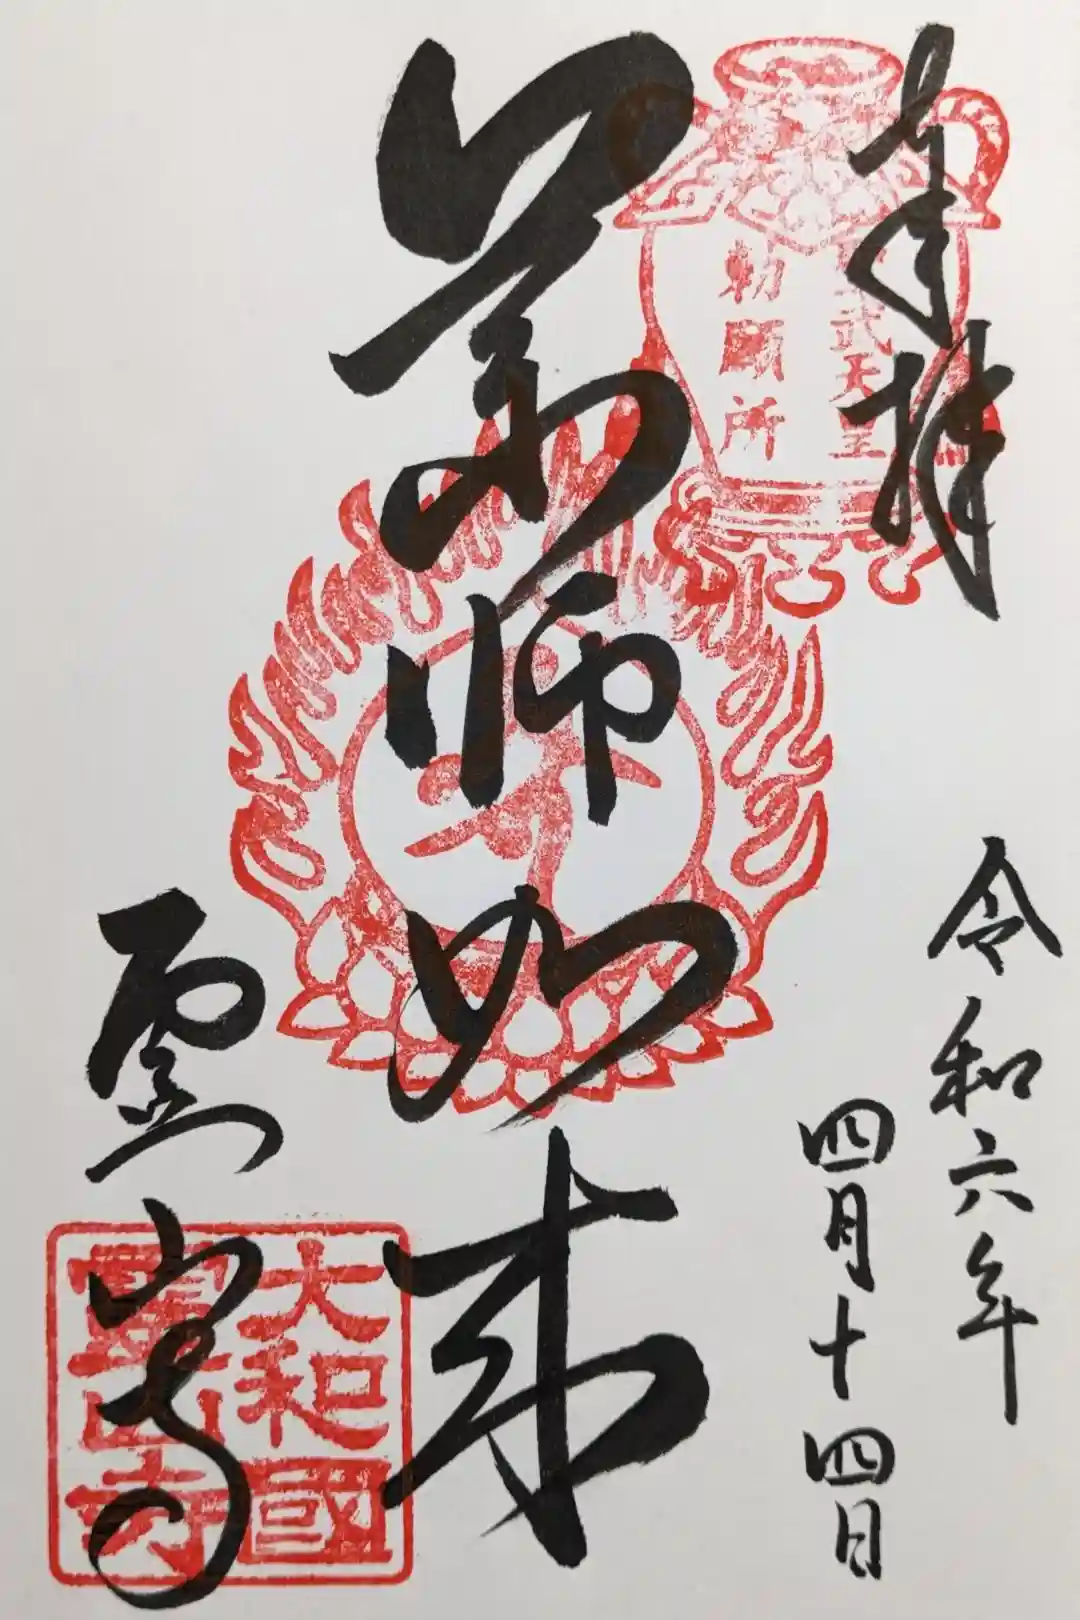 奉拝
武天皇
勅願所
令和六年
四月十四日
薬師如来
霊山寺
大和國
霊山寺